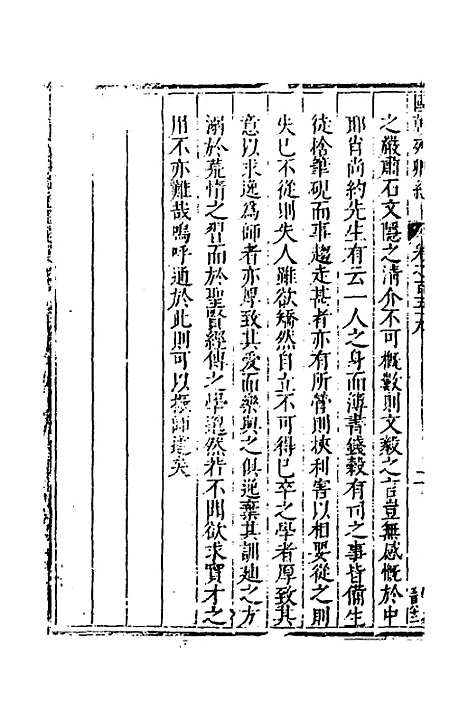 國朝列卿紀 卷之一百五十九
之嚴肅石文隱之清介不可概數則文毅之言豈無感慨於中
耶肖尚約先生有云一人之身而簿書錢穀有司之事皆備生
徒捨筆硯而事趨走甚者亦有所營則挾利害以相要從之則
失已不從則失人雖欲矯然自立不可得已卒之學者厚致其
意以求逸為師者亦厚致其愛而樂與之俱逆棄其訓廸之方
溺於荒惰之習而於聖賢經傳之學邈然若不聞欲求實才之
用不亦難哉嗚呼通於此則可以振師道矣